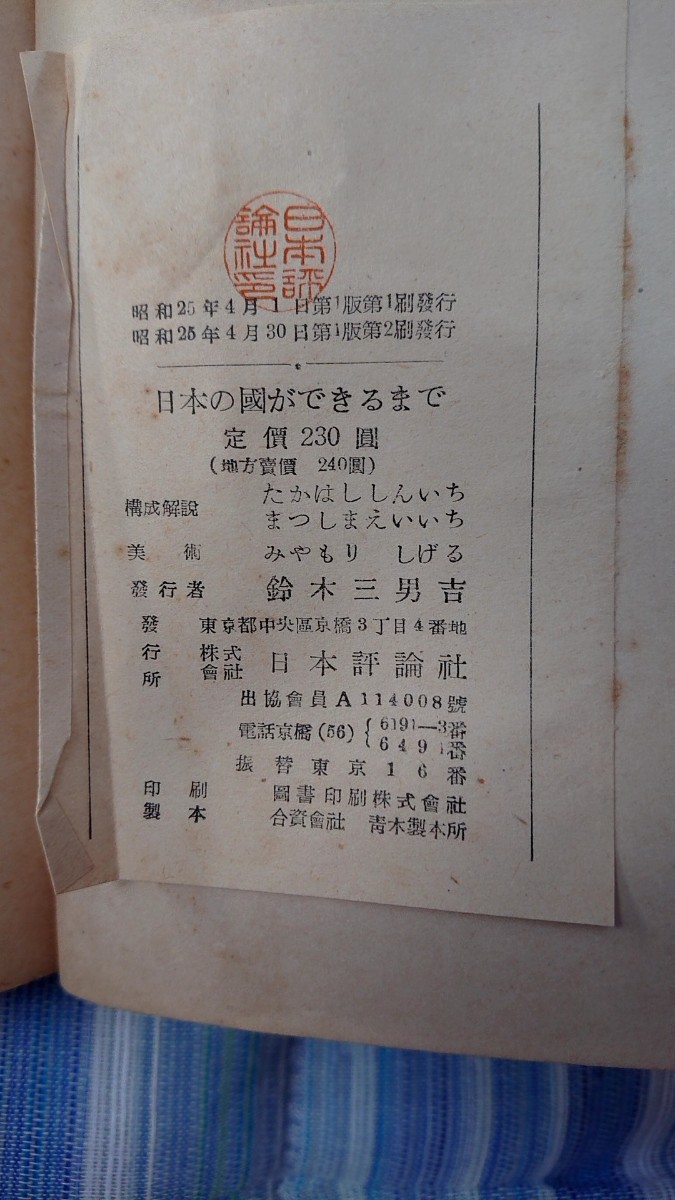 日本評論社印
昭和25年4月1日第1版第1刷發行
昭和25年4月30日第1版第2刷發行
日本の國ができるまで
定價 230 圓
(地方賣價 240圓)
構成解説 たかはししんいち
まつしまえいいち
美術 みやもり しげる
發行者 鈴木三男吉
發行所 東京都中央區京橋3丁目4番地
株式會社 日本評論社
出協會員A114008號
電話京橋(56) {6191—3番
6491番
振替東京16番
印刷 圖書印刷株式會社
製本 合資會社 青木製本所